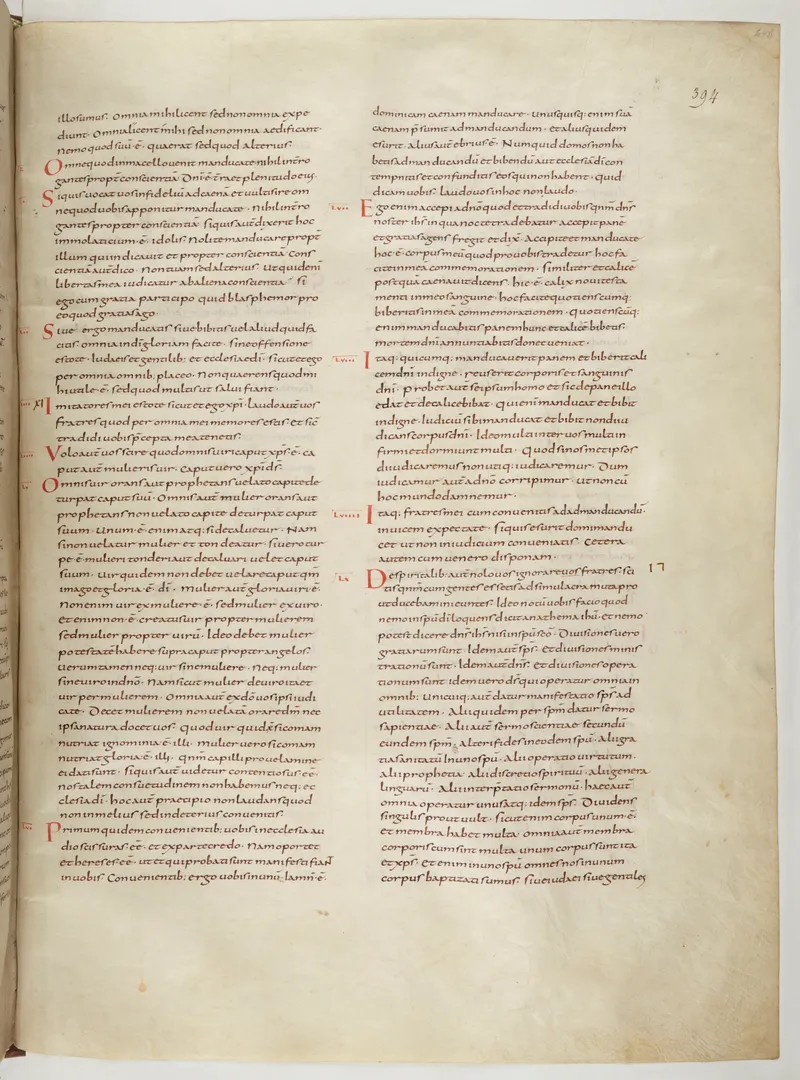 394
illo sumus. Omnia mihi licent sed non omnia expe
diunt. Omnia licent mihi sed non omnia aedificant.
nemo quod suū ÷ quaerat sed quod alterius.
Omne quod in macello uenit manducate nihil interro
gantes ppt conscientiā. Dn̄i ÷ terra et plenitudo eius.
Si quis uocat uos infideliū ad caenā et uultis ire om
ne quod uobis apponitur manducate. nihil interro
gantes propter conscientiā. si quis aut̄ dixerit hoc
immolaticium ÷ idolis. Nolite manducare propt
illum qui indicauit et propter conscientiā. Cons
cientiā aut̄ dico. non tuam sed alterius. Ut quid enī
libertas mea iudicatur ab aliena conscientia. si
ego cum gratia participo quid blasphemor pro
eo quod gratias ago.
Siue ergo manducatis siue bibitis uel aliud quid fa
citis. omnia in dī gloriam facite. sine offensione
estote. Iudaeis et gentilib; et ecclesiae dī. sicut et ego
per omnia omnib; placeo. Non quaerens quod mi
hi utile ÷ sed quod multis ut salui fiant.
XI Imitatores mei estote sicut et ego xp̄i. laudo aut̄ uos
fratres quod per omnia mei memores estis et sic
tradidi uobis p̄cepta mea tenetis.
Uolo aut̄ uos scire quod omnis uiri caput xp̄s ÷. ca
put aut̄ mulieris uir. caput uero xp̄i ds̄.
Omnis uir orans aut prophetans uelato capite de
turpat caput suū. Omnis aut̄ mulier orans aut
prophetans non uelato capite deturpat caput
suum. Unum ÷ enim atq; si decaluetur. Nam
si non uelatur mulier et tondeatur. si uero tur
pe ÷ mulieri tonderi aut decaluari uelet caput
suum. Uir quidem non debet uelare caput qm̄
imago et gloria ÷ dī. mulier aut̄ gloria uiri ÷.
Non enim uir ex muliere ÷ sed mulier ex uiro.
Etenim non ÷ creatus uir propter mulierem
sed mulier propter uirū. Ideo debet mulier
potestatē habere supra caput propter angelos.
uerumtamen neq; uir sine muliere. Neq; mulier
sine uiro in dn̄o. Nam sicut mulier de uiro ita et
uir per mulierem. Omnia aut̄ ex dō uos ipsi iudi
cate. Decet mulierem non uelatā orare dm̄ nec
ipsa natura docet uos. quod uir quidē si comam
nutriat ignominia ÷ illi. mulier uero si comam
nutriat gloria ÷ illi. qnm̄ capilli pro uelamine
ei dati sunt. si quis aut̄ uidetur contentiosus ēē.
nos talem consuetudinem non habemus neq; ec
clesia dī. hoc aut̄ praecipio non laudans quod
non in melius sed in deterius conuenitis.
Primum quidem conuenientib; uobis in ecclesia au
dio scissuras ēē. et ex parte credo. Nam oportet
et hereses ēē. ut et qui probati sunt manifesti fiant
in uobis. Conuenientib; ergo uobis in unū iam ñ ÷
dominicam caenam manducare. Unusquisq; enim suā
caenam p̄sumit ad manducandum. et alius quidem
esurit. Alius aut̄ ebrius ÷. Numquid domos non ha
betis ad manducandū et bibendū aut ecclesiā dī con
temnitis et confunditis eos qui non habent. quid
dicam uobis laudo uos in hoc non laudo.
Ego enim accepi a dn̄o quod et tradidi uobis qnm̄ dn̄s
noster ihs̄ in qua nocte tradebatur accepit panē
et gratias agens fregit et dix̄. Accipite et manducate
hoc ÷ corpus meū quod pro uobis tradetur hoc fa
cite in mea commemorationem. similiter et calicē
postquā caenauit dicens. hic ÷ calix noui testa
menti in meo sanguine. hoc facite quotienscumq;
bibetis in mea commemorationem. quotiensc̄uq;
enim manducabitis panem hunc et calicē bibetis.
mortem dn̄i annuntiabitis donec ueniat.
Itaq; quicumq; manducauerit panem et biberit cali
cem dn̄i indigne. reus erit corporis et sanguinis
dn̄i. probet aut̄ se ipsum homo et sic de pane illo
edat et de calice bibat. qui enī manducat et bibit
indigne. Iudiciū sibi manducat et bibit non diiu
dicans corpus dn̄i. Ideo multi inter uos multi in
firmi et dormiunt multi. quod si nos met ipsos
diiudicaremus non utiq; iudicaremur. Dum
iudicamur aut̄ a dn̄o corripimur. ut non cū
hoc mundo damnemur.
Itaq; fratres mei cum conuenitis ad manducandū.
inuicem expectate. si quis esurit domi mandu
cet ut non in iudicium conueniatis. Cetera
autem cum uenero disponam.
De spiritalib; aut̄ nolo uos ignorare uos fratres. sci
tis qnm̄ cum gentes essetis ad simulacra muta pro
ut ducebamini euntes. Ideo notū uobis facio quod
nemo in sp̄u dī loquens dicit anathema ihū. et nemo
potest dicere dn̄s ihs̄ nisi in sp̄u sc̄o. Diuisiones uero
gratiarum sunt. Idem aut̄ sp̄s. et diuisiones minis
trationū sunt. Idem aut̄ dn̄s. et diuisiones opera
tionum sunt idem uero ds̄ qui operatur omnia in
omnib; Unicuiq; aut̄ datur manifestatio sp̄s ad
utilitatem. Alii quidem per sp̄m datur sermo
sapientiae. Alii aut̄ sermo scientiae secundū
eundem sp̄m; Alteri fides in eodem sp̄u. Alii gra
tia sanitatū In uno sp̄u. Alii operatio uirtutum.
Alii prophetia. Alii discretio spirituū. Alii genera
linguarū. Alii interp̄tatio sermonū. haec aut̄
omnia operatur unus atq; idem sp̄s. Diuidens
singulis prout uult. sicut enim corpus unum ÷
et membra habet multa. omnia aut̄ membra
corporis cum sint multa unum corpus sunt ita
et xp̄s. Etenim in uno sp̄u omnes nos in unum
corpus baptizati sumus. siue iudaei siue gentiles